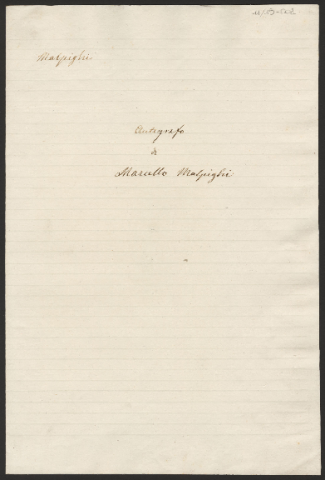 Malpighi
Autografo
di
Marcello Malpighi